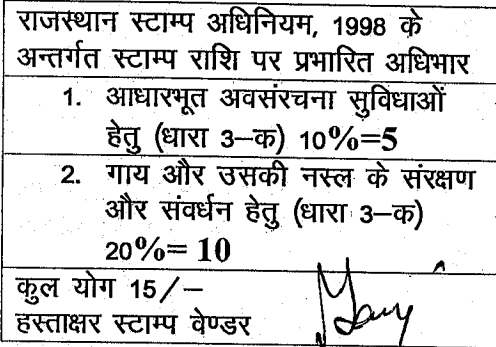 राजस्थान स्टाम्प अधिनियम, 1998 के
अन्तर्गत स्टाम्प राशि पर प्रभारित अधिभार
1. आधारभूत अवसंरचना सुविधाओं
हेतु (धारा 3–क) 10%=5
2. गाय और उसकी नस्ल के संरक्षण
और संवर्धन हेतु (धारा 3–क)
20%= 10
कुल योग 15/–
हस्ताक्षर स्टाम्प वेण्डर